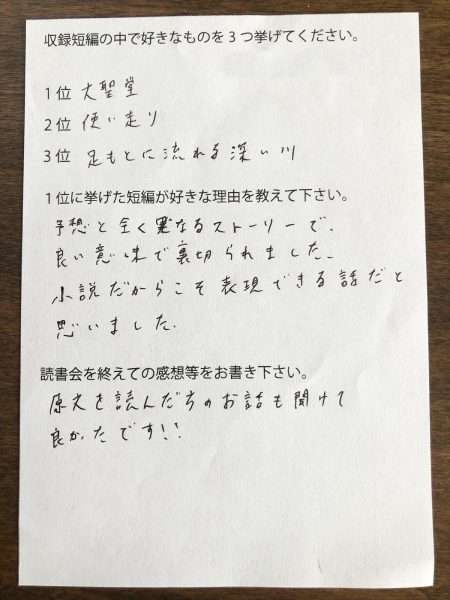 収録短編の中で好きなものを3つ挙げてください。
1位 大聖堂
2位 使い走り
3位 足もとに流れる深い川
1位に挙げた短編が好きな理由を教えて下さい。
予想と全く異なるストーリーで、
良い意味で裏切られました。
小説だからこそ表現できる話だと
思いました。
読書会を終えての感想等をお書き下さい。
原文を読んだ方のお話も聞けて
良かったです!!